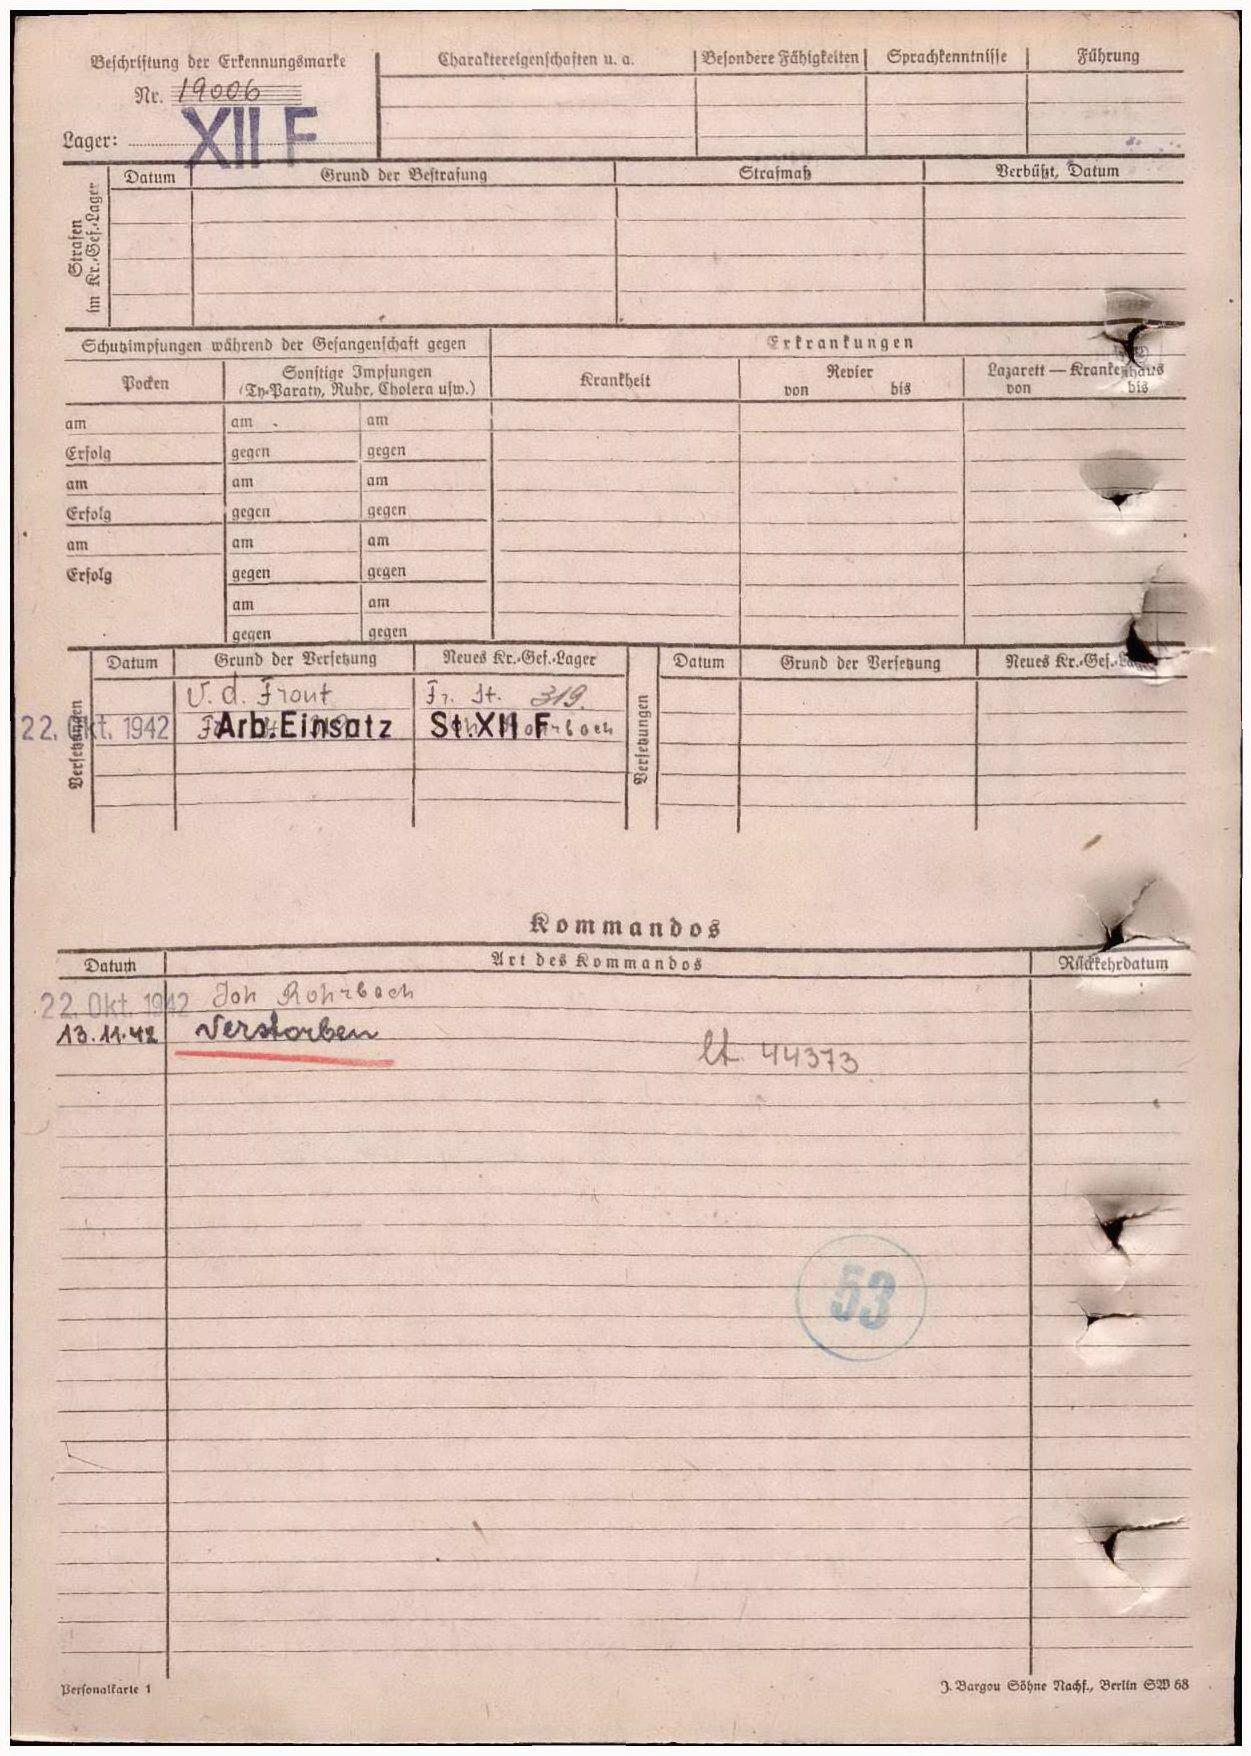 Beschriftung der Erkennungsmarke
Nr. 19006
Lager: XII F
Charaktereigenschaften u. a.
Besondere Fähigkeiten
Sprachkenntnisse
Führung
Strafen
im Kr.-Gef.-Lager
Datum
Grund der Bestrafung
Strafmaß
Verbüßt, Datum
Schutzimpfungen während der Gefangenschaft gegen
Erkrankungen
Pocken
Sonstige Impfungen
(Ty-Paraty, Ruhr, Cholera usw.)
Krankheit
Revier
von bis
Lazarett — Krankenhaus
von bis
am am am
Erfolg gegen gegen
am am am
Erfolg gegen gegen
am am am
Erfolg gegen gegen
am am
gegen gegen
Versetzungen
Datum Grund der Versetzung Neues Kr.-Gef.-Lager
V. d. Front Fr. St. 319.
22. Okt. 1942 Arb.Einsatz St.XII F
Versetzungen
Datum Grund der Versetzung Neues Kr.-Gef.-Lager
Kommandos
Datum Art des Kommandos Rückkehrdatum
22. Okt. 1942 Joh Rohrbach
13.11.42 Verstorben
lt. 44373
53
Personalkarte 1
J. Bargou Söhne Nachf., Berlin SW 68